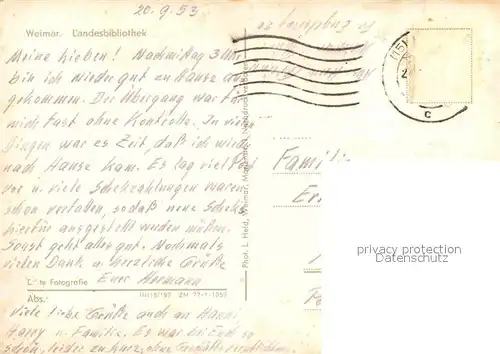 20.9.53
Weimar. Landesbibliothek
Meine Lieben! Nachmittag 3 Uhr
bin ich wieder gut zu Hause an-
gekommen. Der Übergang war für
mich fast ohne Kontrolle. In vielen
Dingen war es Zeit, daß ich wieder
nach Hause kam. Es lag viel Post
vor u. viele Scheckzahlungen waren
schon verfallen, sodaß neue Schecks
hierfür ausgestellt werden müssen.
Sonst geht alles gut. Nochmals
vielen Dank u. herzliche Grüße
Euer Hermann
Echte Fotografie
Abs.:
Viele liebe Grüße auch an Hanni,
Harry u. Familie. Es war bei Euch so
schön, leider zu kurz, ohne
Phot. L. Held, Weimar, Marienstr.
Famil
privacy protection
C